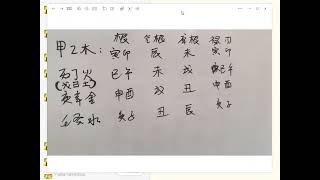 根 库根 禄刃
甲乙木: 寅卯 辰 未 寅卯
丙丁火 巳午 未 戌 巳午
(戊己土)
庚辛金 申酉 戌 丑 申酉
壬癸水 亥子 丑 辰 亥子